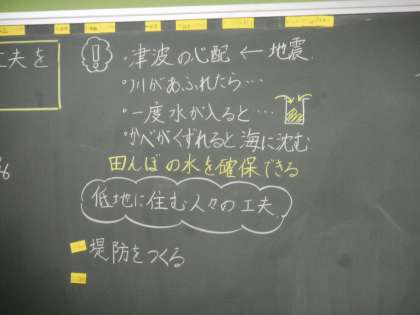 工夫を
!
・津波の心配 ← 地震
・川があふれたら…
・一度水が入ると…
・かべがくずれると海に沈む
田んぼの水を確保できる
低地に住む人々の工夫
堤防をつくる